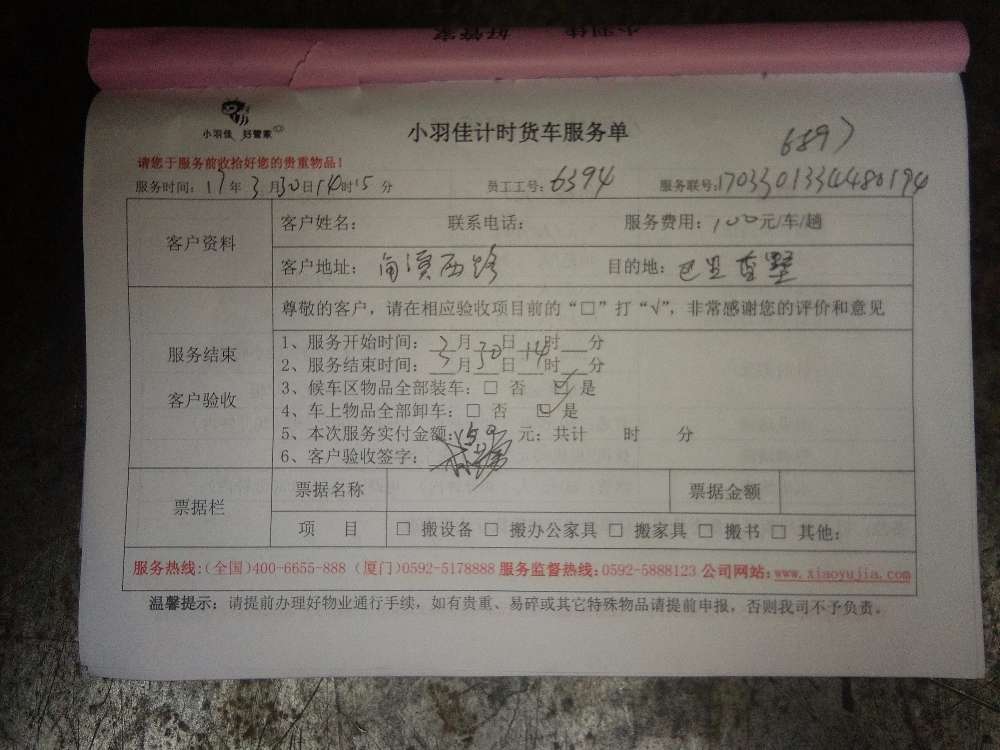 小羽佳 好管家
小羽佳 好管家
小羽佳计时货车服务单
6897
请您于服务前收拾好您的贵重物品!
服务时间: 17年3月30日14时15分 员工工号: 6394 服务联号: 1703301334480194
客户资料
客户姓名: 联系电话: 服务费用: 100元/车/趟
客户地址: 西路 目的地: 墅
服务结束
客户验收
尊敬的客户，请在相应验收项目前的“□”打“√”，非常感谢您的评价和意见
1、服务开始时间: 3月30日14时__分
2、服务结束时间: __月__日__时__分
3、候车区物品全部装车: □ 否 ☑ 是
4、车上物品全部卸车: □ 否 ☑ 是
5、本次服务实付金额: 元; 共计 时 分
6、客户验收签字:
票据栏
票据名称 票据金额
项 目 □ 搬设备 □ 搬办公家具 □ 搬家具 □ 搬书 □ 其他:
服务热线:(全国)400-6655-888 (厦门)0592-5178888 服务监督热线:0592-5888123 公司网站:www.xiaoyujia.com
温馨提示: 请提前办理好物业通行手续，如有贵重、易碎或其它特殊物品请提前申报，否则我司不予负责。